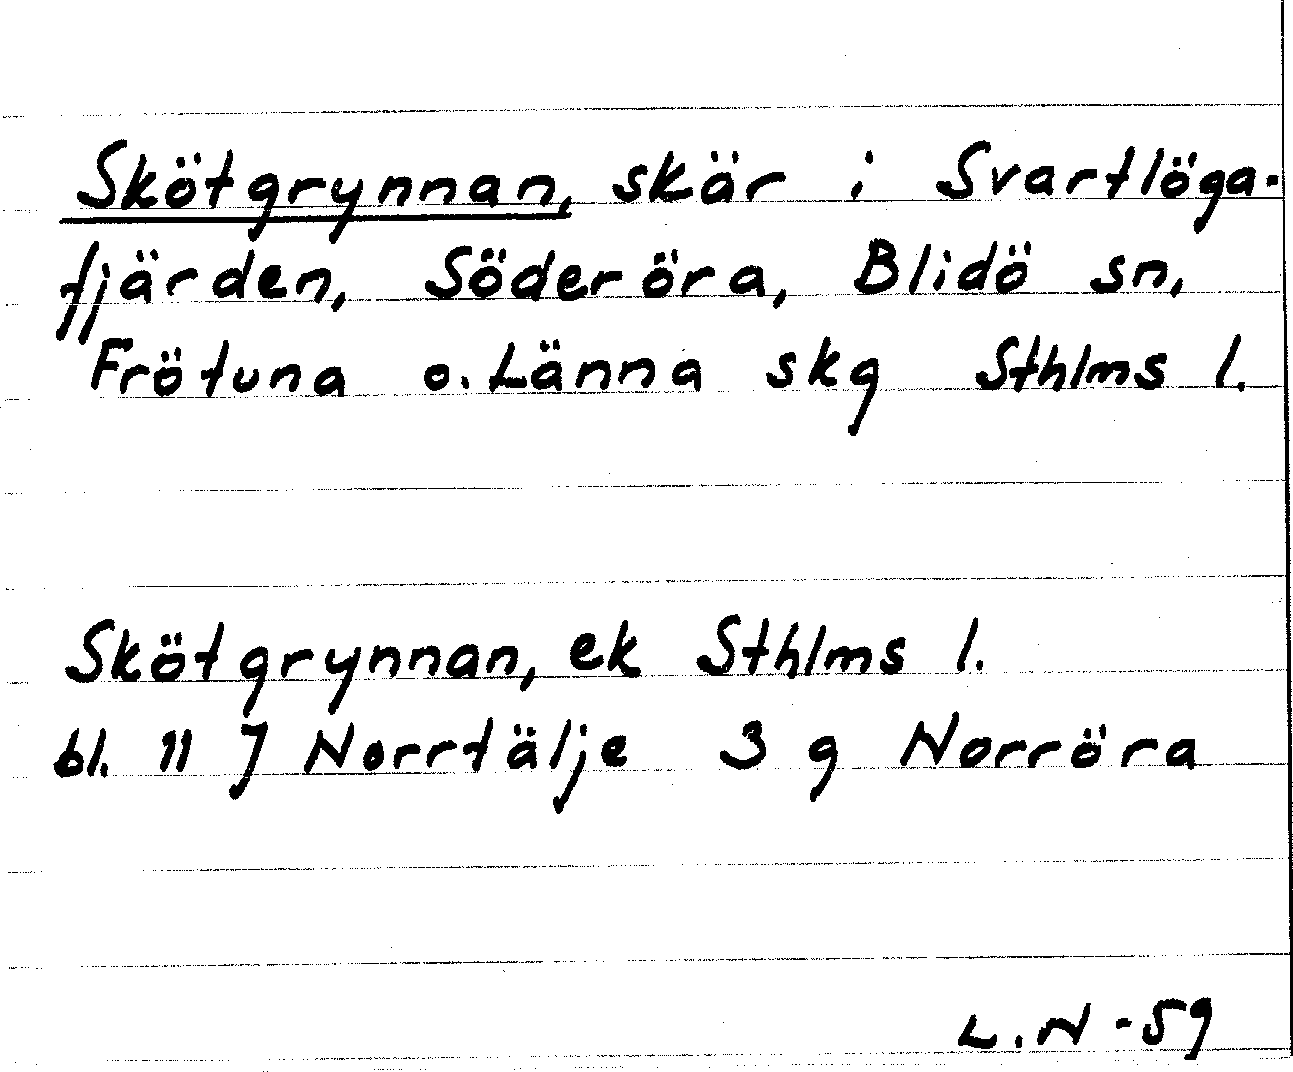 Skötgrynnan, skär i Svartlöga-
fjärden, Söderöra, Blidö sn,
Frötuna o. Länna skg Sthlms l.
Skötgrynnan, ek Sthlms l.
bl. 11 J Norrtälje 3 g Norröra
L.N -59